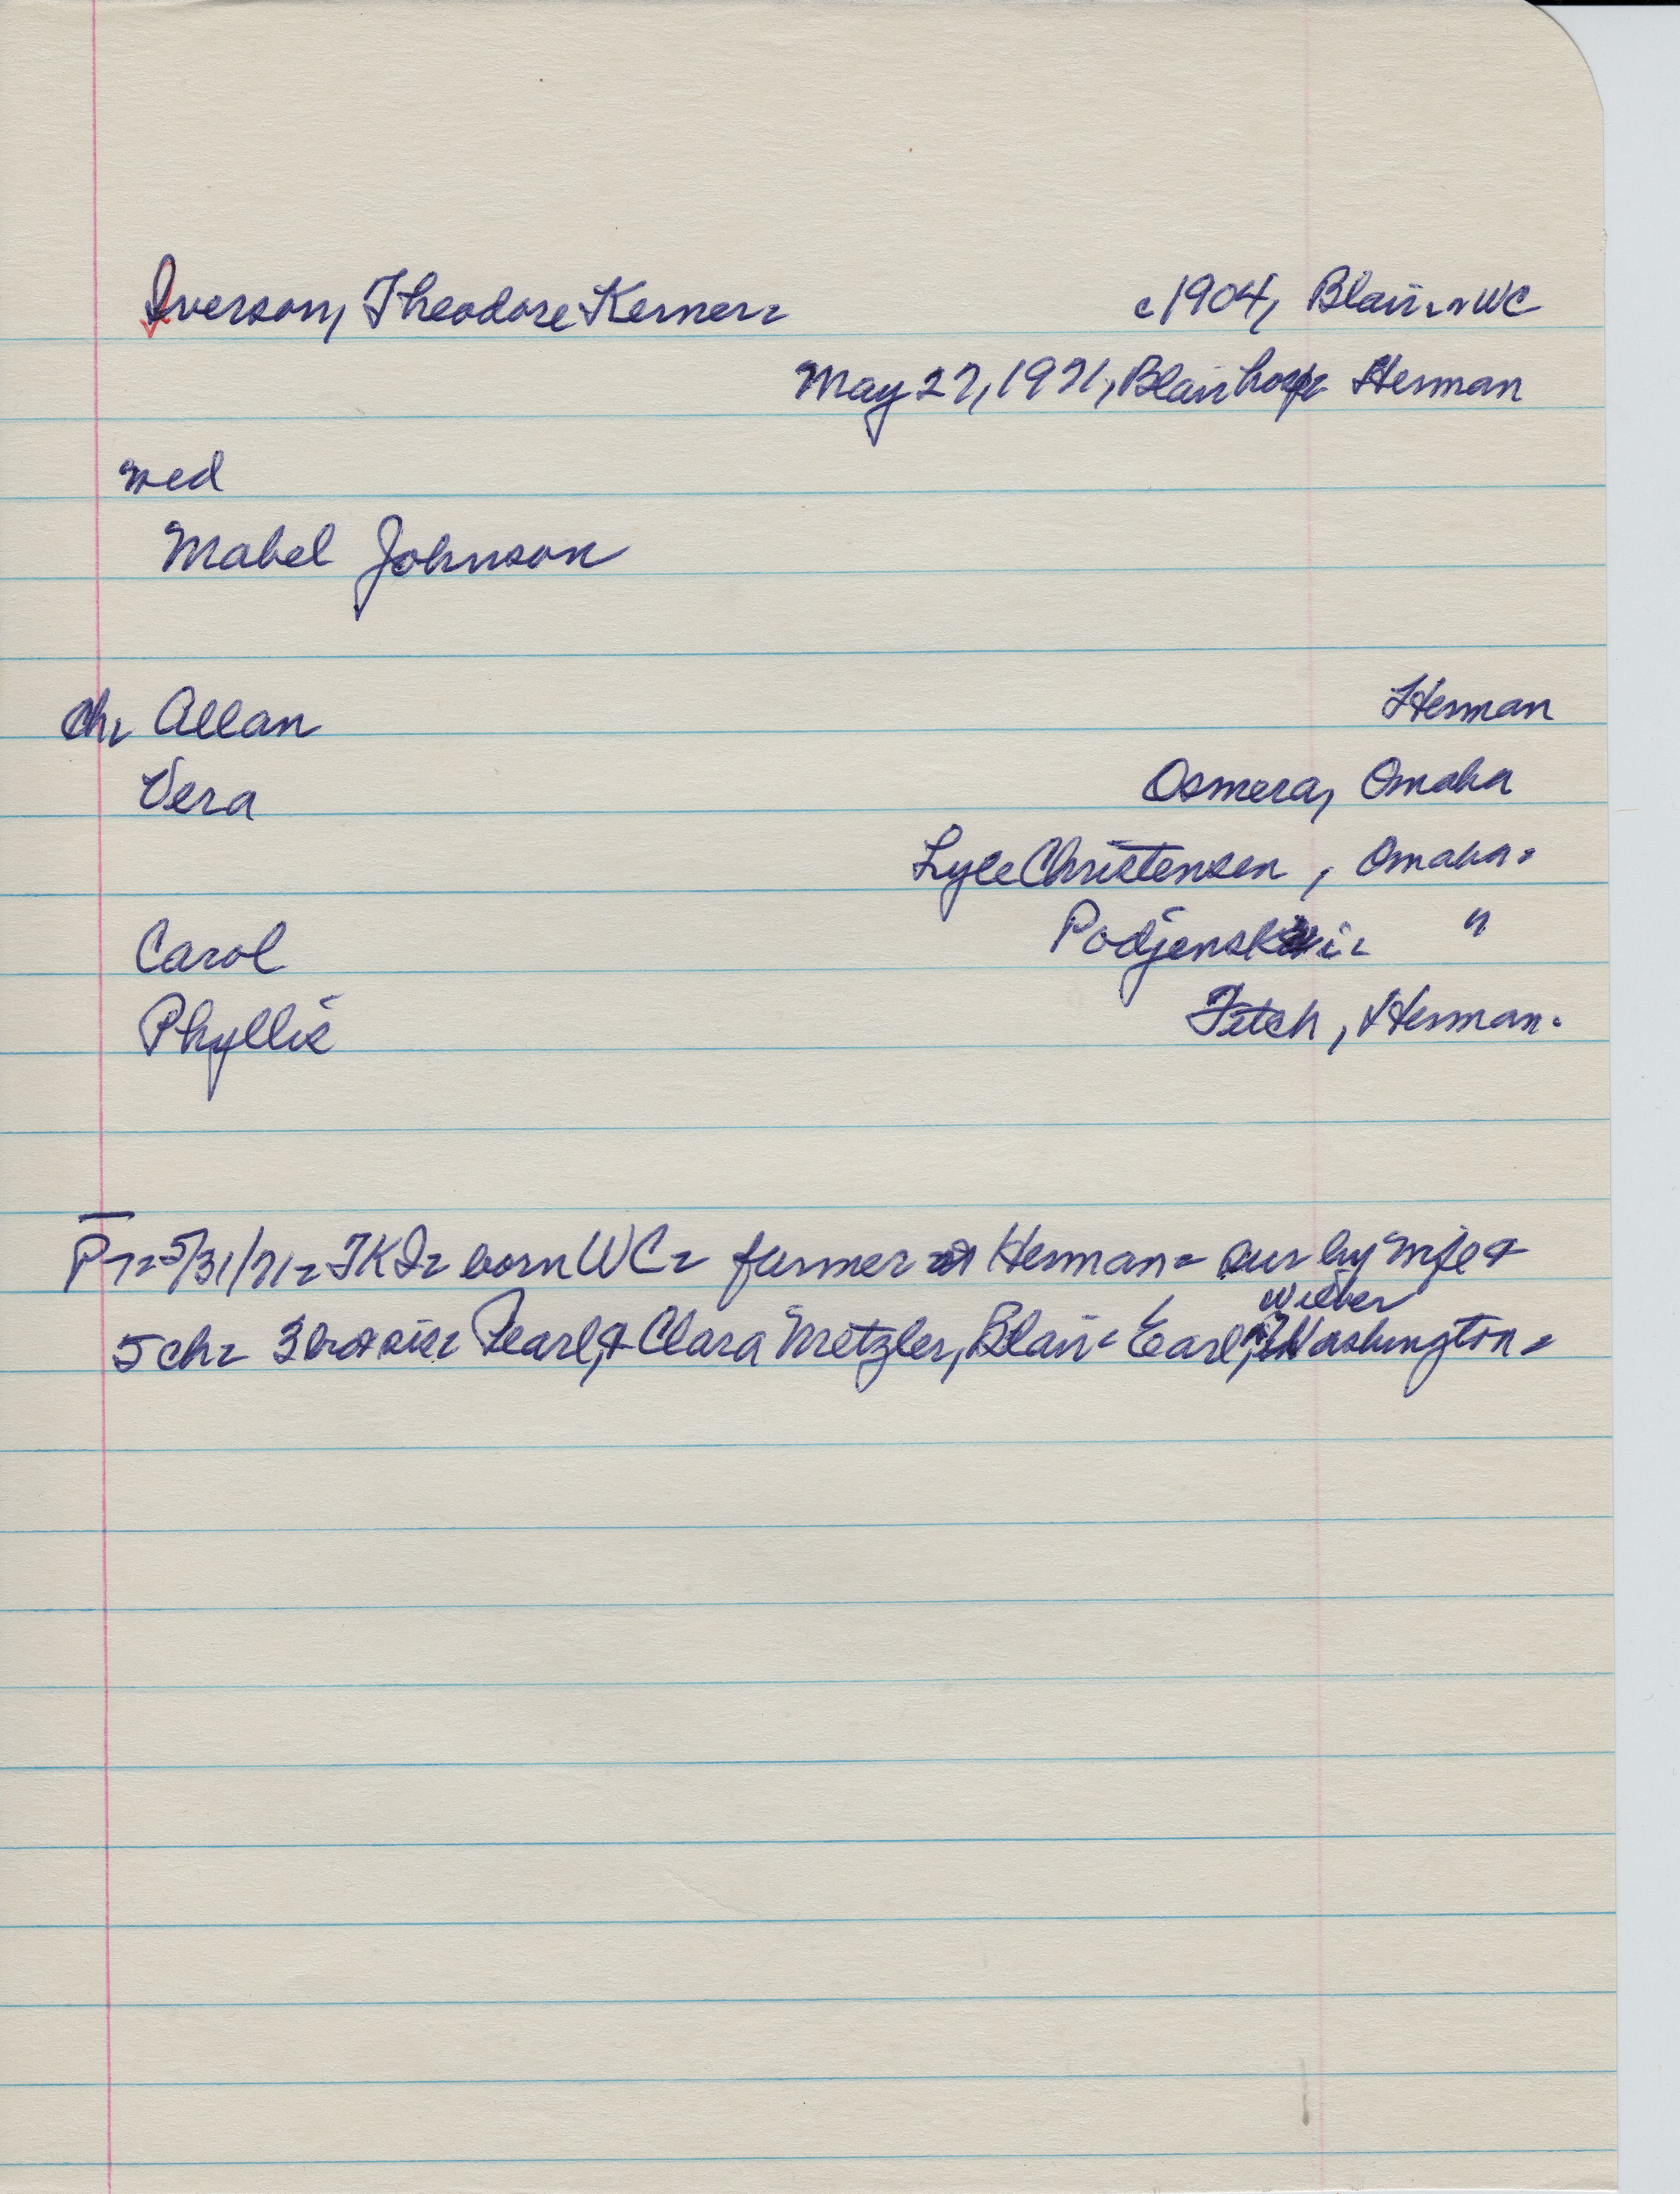 Iverson, Theodore Kerner- c1904, Blair or WC
May 27, 1971, Blair hosp- Herman
wed
Mabel Johnson
ch- Allan Herman
Vera Osmera, Omaha
Lyle Christensen, Omaha-
Carol Podjenski- "
Phyllis Fitch, Herman.
PT- 5/31/71- TKI- born WC- farmer at Herman- sur by wife &
Wilbur
5 ch- 3 br & sis- Pearl, & Clara Metzler, Blair- Earl, Washington-